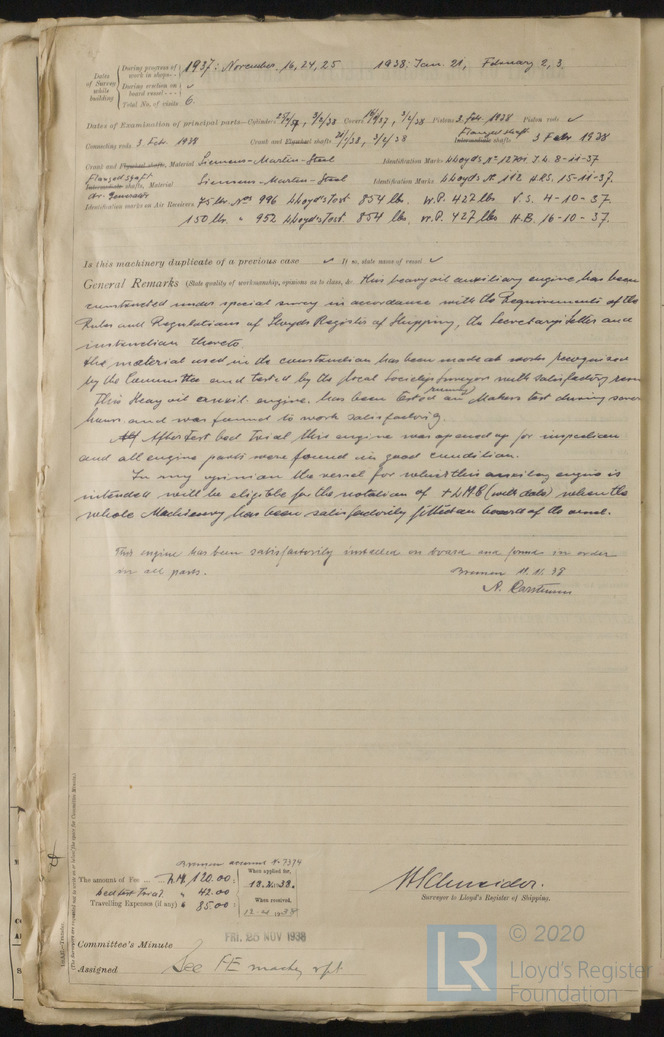 Dates of Survey while building
During progress of work in shops - - 1937: November. 16, 24, 25 1938: Jan. 21, February 2, 3.
During erection on board vessel - - - ✓
Total No. of visits 6.
Dates of Examination of principal parts—Cylinders 3/2/38 Covers 3/2/38 Pistons 3. Feb. 1938 Piston rods ✓
Connecting rods 3 Feb. 1938 Crank and Flywheel shafts 3/2/38 Flanged shaft Intermediate shafts 3 Feb 1938
Crank and Flywheel shafts, Material Siemens-Martin-Steel Identification Marks Lloyds No 12701 J.H. 8-11-37
Flanged shaft
Intermediate shafts, Material Siemens-Martin-Steel Identification Marks Lloyd's No. 112 HRS. 15-11-37.
Identification marks on Air Receivers 75 ltr. Nos 996 Lloyds Test 854 lbs. W.P. 427 lbs V.S. 4-10-37.
150 ltr. " 952 Lloyds Test. 854 lbs. W.P. 427 lbs H.B. 16-10-37.
Is this machinery duplicate of a previous case ✓ If so, state name of vessel ✓
General Remarks (State quality of workmanship, opinions as to class, &c. This heavy oil auxiliary engine has been
constructed under special survey in accordance with the Requirements of the
Rules and Regulations of Lloyds Register of Shipping, the Secretary's letter and
instruction thereto.
The material used in the construction has been made at works recognized
by the Committee and tested by the local Society's Surveyors with satisfactory
This Heavy oil auxil. engine has been tested on Makers bed during
hours and was found to work satisfactorily.
After test bed trial this engine was opened up for inspection
and all engine parts were found in good condition.
In my opinion the vessel for which this auxiliary engine is
intended will be eligible for the notation of + LMC (with date) when the
whole Machinery has been satisfactorily fitted on board of the vessel.
This engine has been satisfactorily installed on board and found in order
in all parts.
Bremen 11.11.38
Bremen account No 7374
The amount of Fee ... R.M. 120.00: When applied for,
bed test Trial " 42.00: 18.X.38.
Travelling Expenses (if any) " 85.00: When received,
W. Schneider.
Surveyor to Lloyd's Register of Shipping.
Committee's Minute FRI. 25 NOV 1938
Assigned See FE machy rpt.
© 2020
LR
Lloyd's Register
Foundation